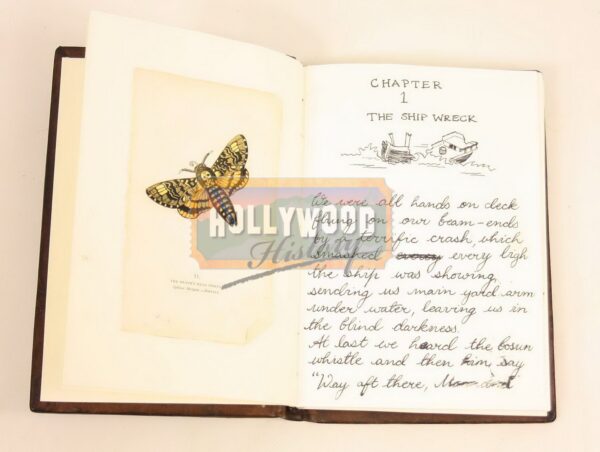 THE DEATH'S HEAD
CHAPTER
1
THE SHIP WRECK
HOLLYWOOD
History
We were all hands on deck
on our beam-ends
by a terrific crash, which
smashed every ligh
the ship was showing,
sending us main yard arm
under water, leaving us in
the blind darkness.
At last we heard the bosun
whistle and then him say
"Way aft there,